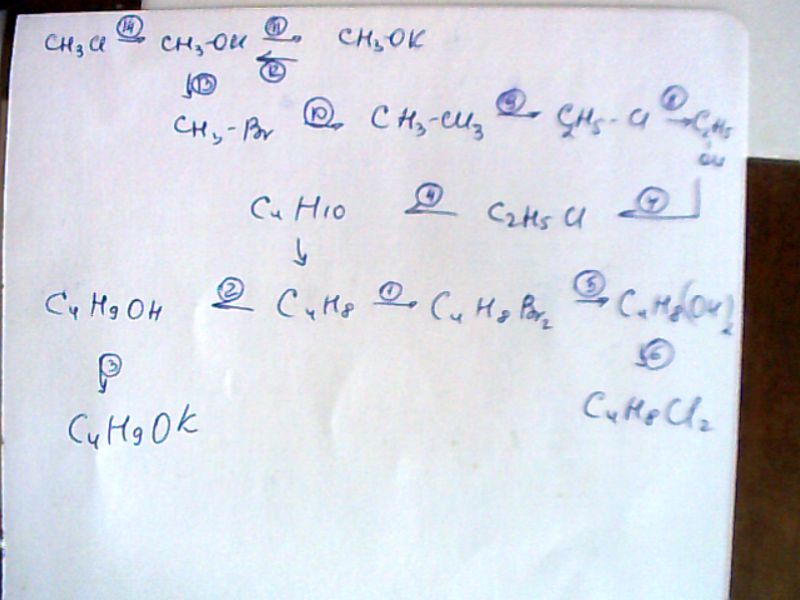 CH₃Cl ⑭→ CH₃-OH ⑪→ ←⑫ CH₃OK
↓⑬
CH₃-Br ⑩→ CH₃-CH₃ ⑨→ C₂H₅-Cl ⑧→ C₂H₅
OH
C₄H₁₀ ←④ C₂H₅Cl ←⑦
↓
C₄H₉OH ←② C₄H₈ ①→ C₄H₈Br₂ ⑤→ C₄H₈(OH)₂
↓③ ↓⑥
C₄H₉OK C₄H₈Cl₂